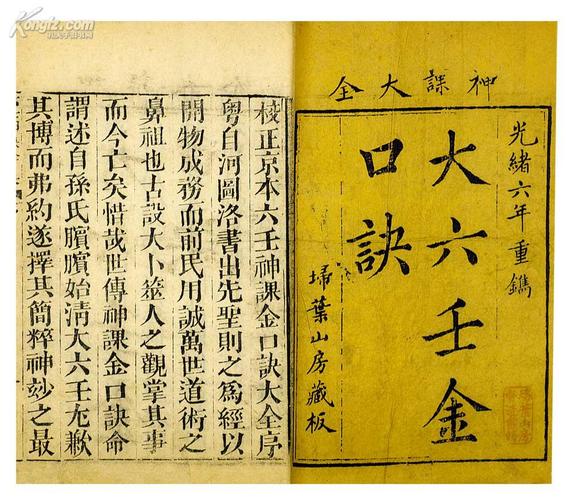 神課大全
光緒六年重鐫
大六壬金
口訣
埽葉山房藏板
校正京本六壬神課金口訣大全序
粵自河圖洛書出先聖則之爲經以
開物成務而前民用誠萬世道術之
鼻祖也古設大卜筮人之觀掌其事
而今亡矣惜哉世傳神課金口訣命
謂述自孫氏臏臏始淸大六壬尤歉
其博而弗約遂擇其簡粹神妙之最
Kongfz.com
孔夫子旧书网